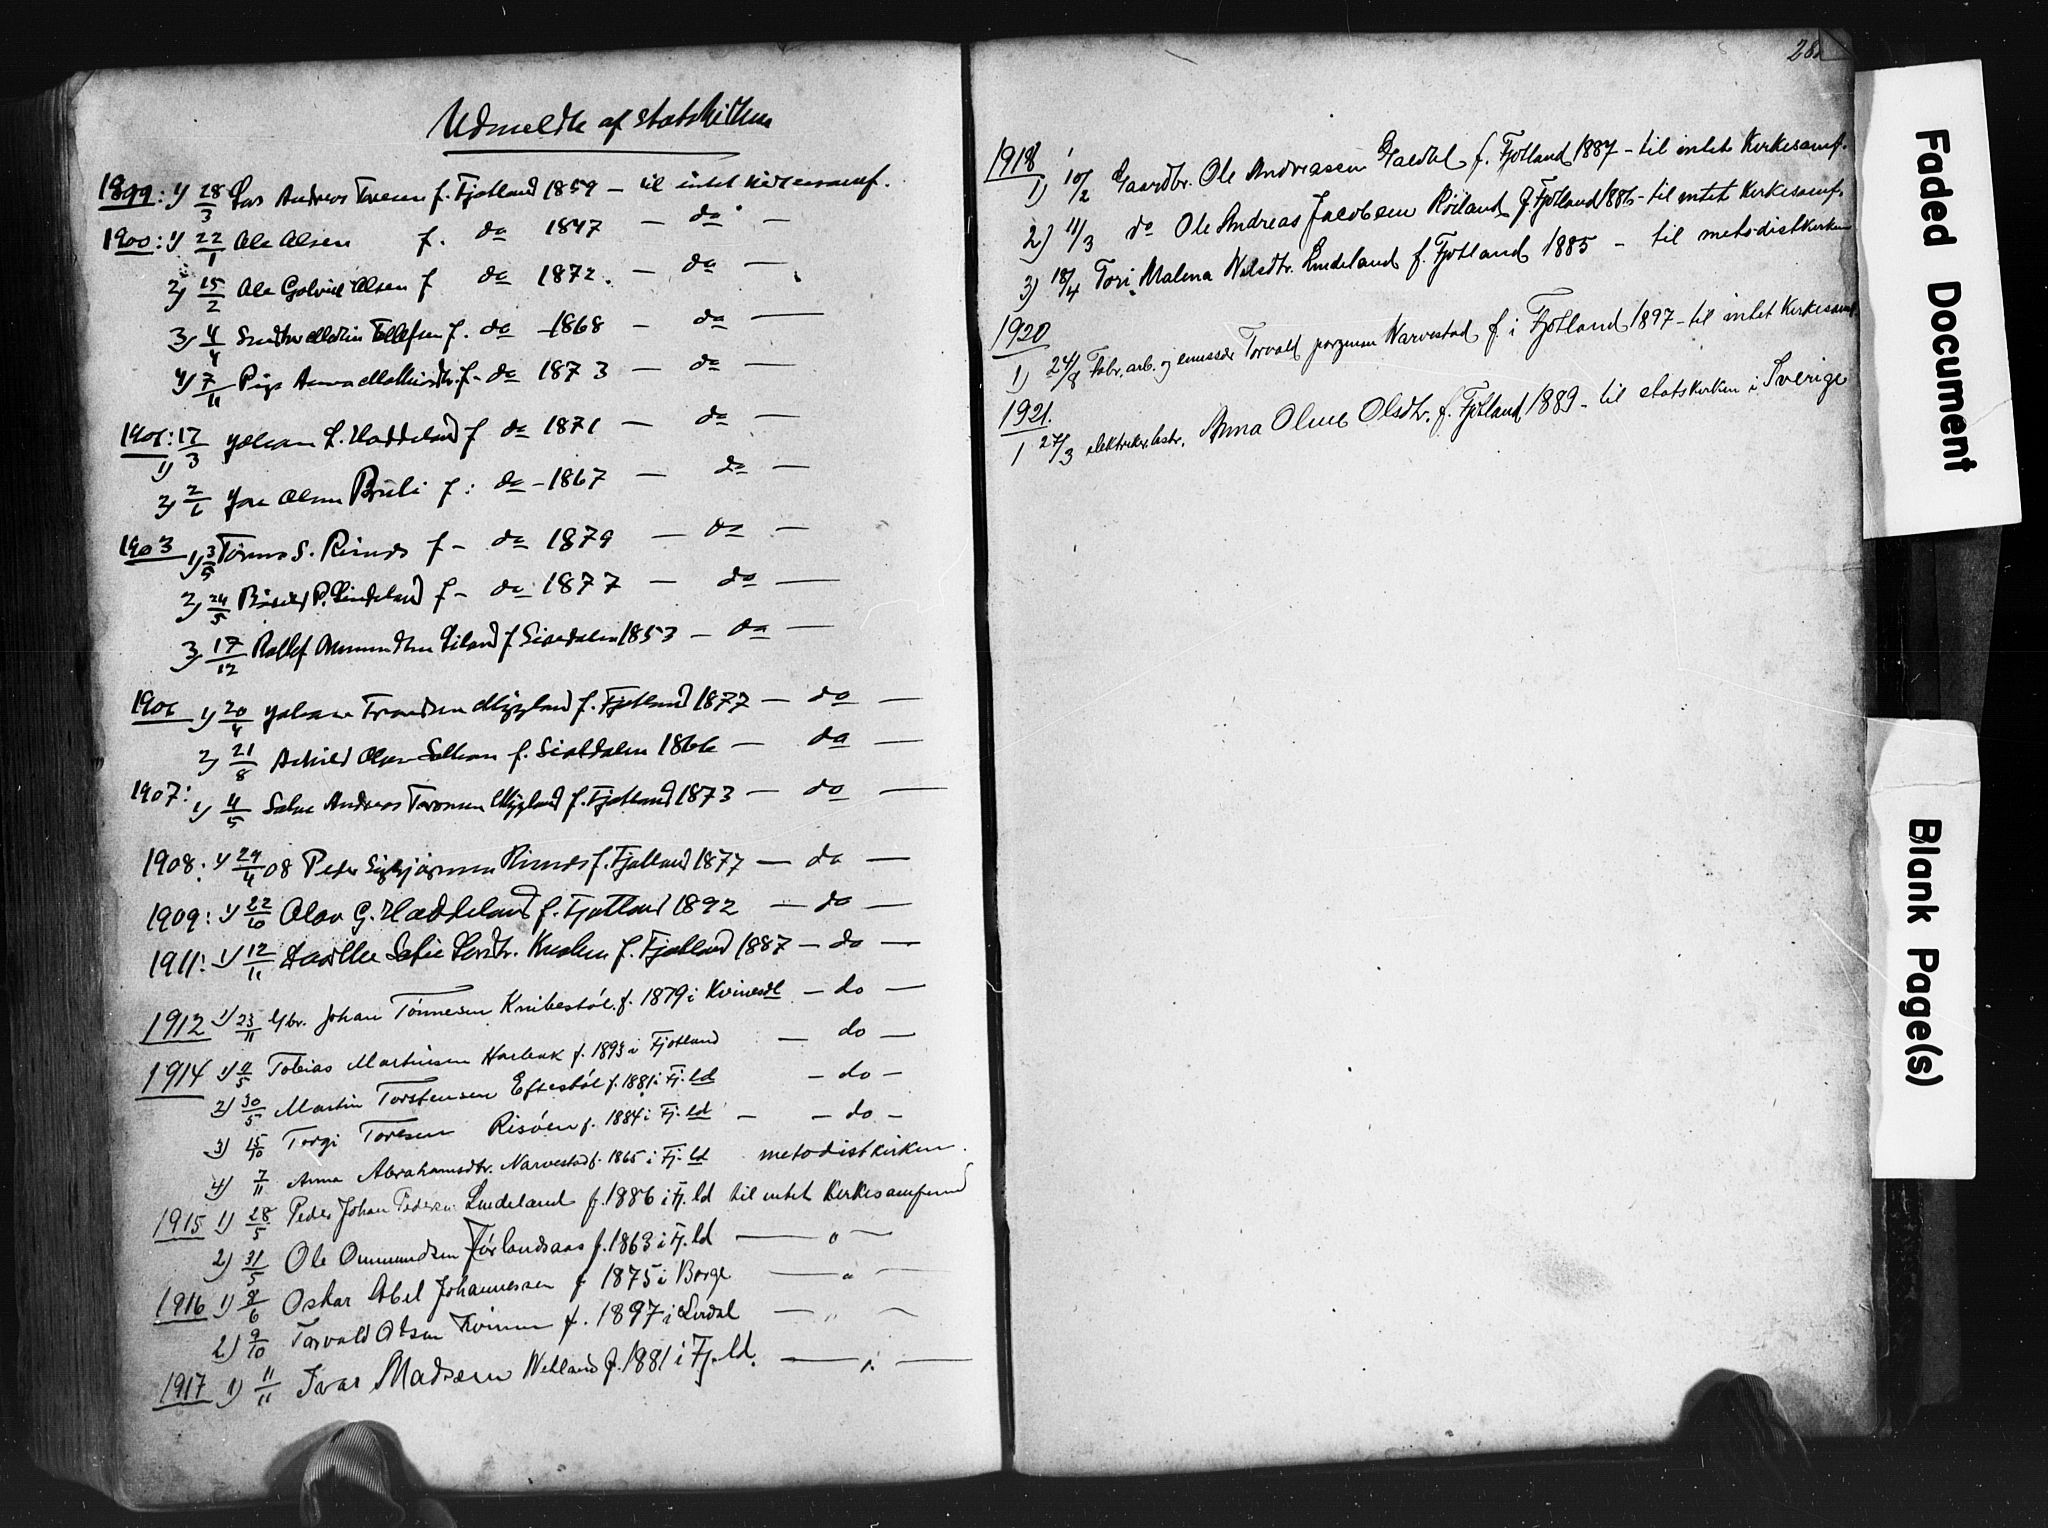 Udmeldte af statskirken
1899: 1) 28/3 Lars Andreas Toresen f. Fjotland 1859 – til intet kirkesamf.
1900: 1) 22/1 Ole Olsen f. do 1847 – do –
2) 15/2 Ole Gabriel Olsen f do 1872. – do –
3) 4/4 Tellefsen f. do – 1868 – do –
4) 7/11 Pige Anna f. do 1873 – do –
1901: 1) 17/3 Johan L. Haddeland f do 1871 – do –
2) 2/6 Olsen Briseli f: do – 1867 – do –
1903 1) 3/5 S. Risnes f – do 1879 – do –
2) 24/5 P. Lindeland f – do 1877 – do –
3) 17/12 f Siredalen 1853 – do –
1906 1) 20/4 Johan Trondsen Mygland f. Fjotland 1877 – do –
2) 21/8 Olsen f. Siredalen 1866 – do –
1907: 1) 4/5 Salve Andreas Mygland f. Fjotland 1873 – do –
1908: 1) 24/4 08 Peder Sigbjørnsen Risnes f. Fjotland 1877 – do –
1909: 1) 22/6 Olav G. Haddeland f. Fjotland 1892 – do –
1911: 1) 12/11 Sofie Larsdtr. Knaben f. Fjotland 1887 – do –
1912 1) 23/11 Gbr. Johan Tönnesen Knibestöl f. 1879 i Kvinesdl – do –
1914 1) 9/5 Tobias Martinsen f. 1893 i Fjotland – do –
2) 30/5 Martin Torstensen Eftestöl f. 1881 i Fj.ld – do –
3) 15/10 Torgi Toresen Risöen f. 1884 i Fj.ld – – do –
4) 7/11 Anna Abrahamsdtr. Narvestad f. 1865 i Fj.ld metodistkirken.
1915 1) 28/5 Peder Johan Pedersen Lindeland f. 1886 i Fj.ld til intet kirkesamfund
2) 31/5 Ole OmmundsenFörlandsaas f. 1863 i Fj.ld – " –
1916 1) 8/6 Oskar Abel Johannessen f 1875 i Borge – " –
2) 9/10 Torvald Olsen f. 1897 i Lyrdal – " –
1917 1) 11/11 Ivar Madsen Netland f. 1881 i Fj.ld. – " –
282
1918
1) 10/2 Gaardbr. Ole Andreassen f. Fjotland 1887 – til intet kirkesamf.
2) 11/3 do Ole Andreas Jacobsen Röiland f. Fjotland 1886 – til intet kirkesamf.
3) 18/4 Tori Malena Nilsdtr. Lindeland f. Fjotland 1885 – til metodistkirken
1920
1) 24/8 Fabr. arb. og emissær Torvald Jörgensen Narvestad f. i Fjotland 1897 – til intet kirkesamf.
1921.
1 27/3 elektrikerhstr. Anna Oline Olsdtr. f. Fjotland 1889 – til statskirken i Sverige
Faded Document
Blank Page(s)